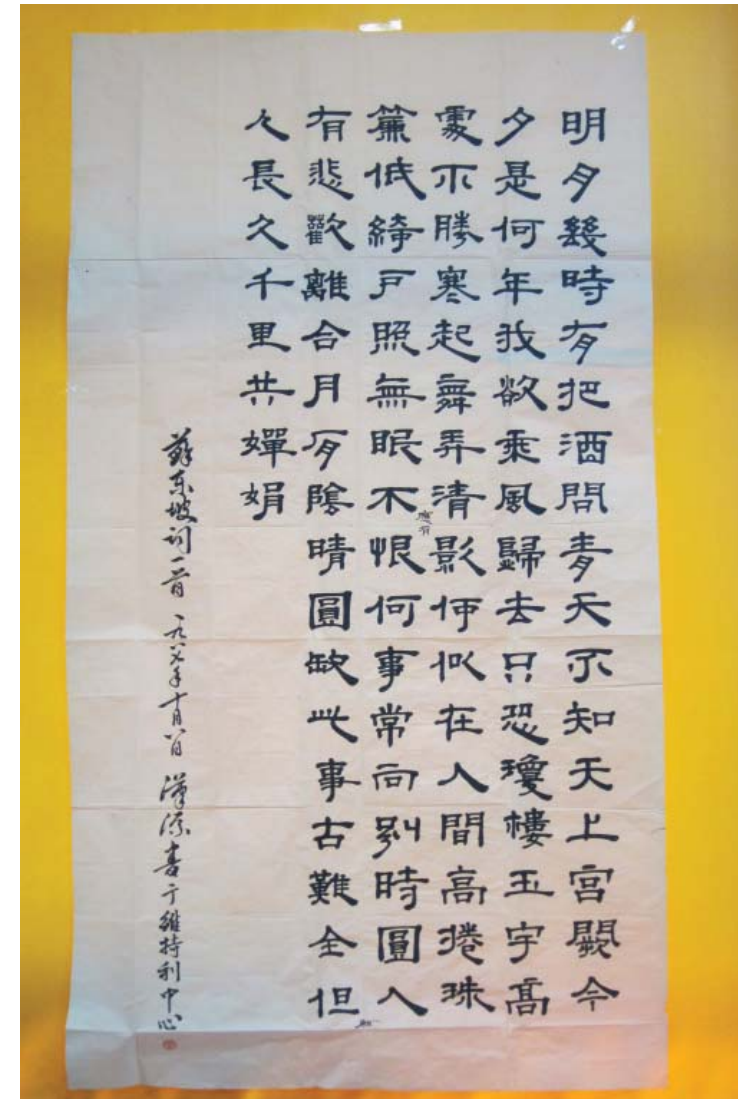 明月幾時有把酒問青天不知天上宮闕今
夕是何年我欲乘風歸去只恐瓊樓玉宇高
處不勝寒起舞弄清影何似在人間高捲珠
簾低綺戶照無眠不恨何事常向別時圓人
應有
有悲歡離合月有陰晴圓缺此事古難全但
人長久千里共嬋娟
蘇东坡词一首 一九八七年十月八日 漢源書于維特利中心